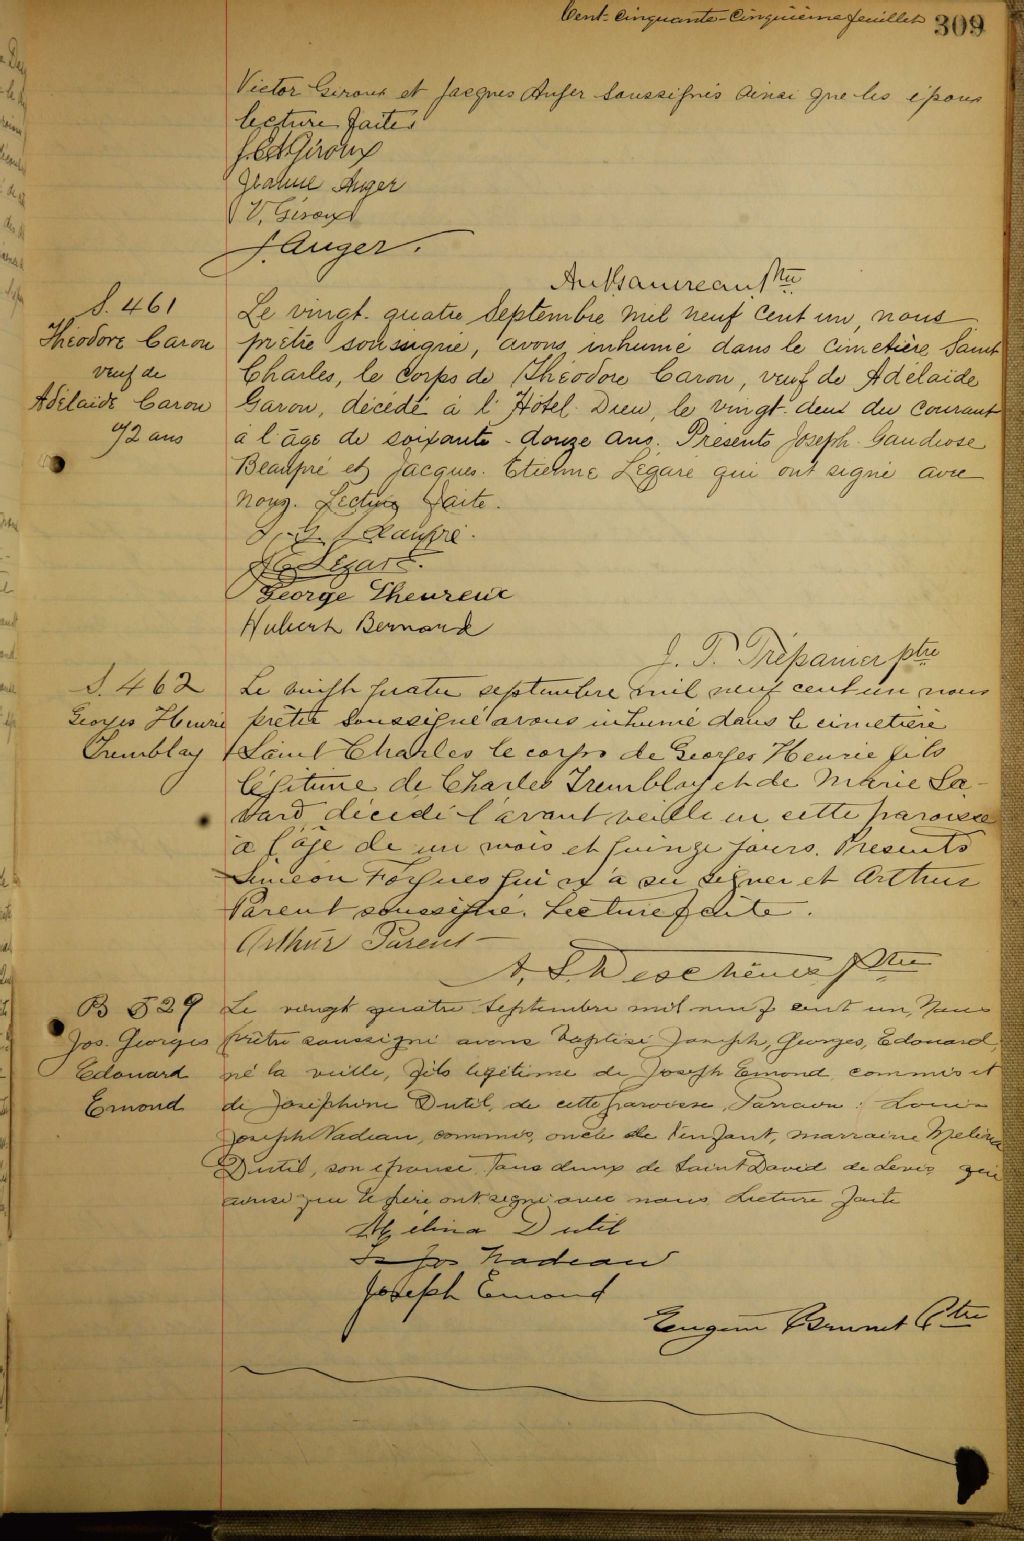 Cent-cinquante-cinquième feuillet 309
Victor Giroux et Jacques Auger soussignés ainsi que les époux
lecture faite
J.E.A Giroux
Jeanne Auger
V. Giroux
J. Auger.
Ptre
S. 461
Théodore Caron
veuf de
Adélaïde Caron
72 ans
Le vingt-quatre Septembre mil neuf cent un, nous
prêtre soussigné, avons inhumé dans le cimetière Saint
Charles, le corps de Théodore Caron, veuf de Adélaïde
Garon, décédé à l'Hôtel-Dieu, le vingt-deux du courant
à l'âge de soixante-douze ans. Présents Joseph-Gaudiose
Beaupré et Jacques-Etienne Légaré qui ont signé avec
nous. Lecture faite.
J.-G. Beaupré.
J E Légaré.
George Lheureux
Hubert Bernard
J. T. Trépanier ptre
S. 462
Georges Henrie
Tremblay
Le vingt quatre septembre mil neuf cent un nous
prêtre soussigné avons inhumé dans le cimetière
Saint-Charles le corps de Georges Henrie fils
légitime de Charles Tremblay et de Marie Sa-
vard décédé l'avant veille en cette paroisse
à l'âge de un mois et quinze jours. Présents
Siméon Forgues qui n'a su signer et Arthur
Parent soussigné. Lecture faite.
Arthur Parent
A. S. Deschênes Ptre
B 529
Jos. Georges
Edouard
Emond
Le vingt quatre Septembre mil neuf cent un, Nous
prêtre soussigné avons baptisé Joseph, Georges, Edouard,
né la veille, fils légitime de Joseph Emond, commis et
de Joséphine Dutil, de cette paroisse, Parrain: Louis
Joseph Nadeau, commis, oncle de l'enfant, marraine Melina
Dutil, son épouse. Tous deux de Saint David de Levis, qui
ainsi que le père ont signé avec nous. Lecture faite
Mélina Dutil
Ls Jos Nadeau
Joseph Emond
Eugène Brunet Ptre